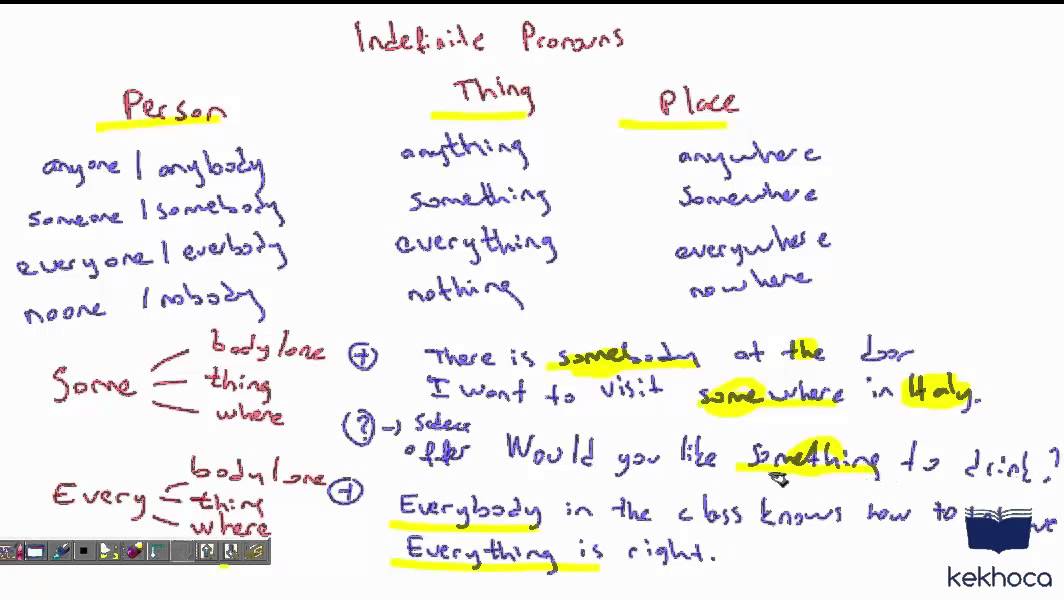 Indefinite Pronouns
Person
Thing
Place
anyone / anybody
anything
anywhere
someone / somebody
something
somewhere
everyone / everbody
everything
everywhere
noone / nobody
nothing
nowhere
Some
body/one
thing
where
+ There is somebody at the door
I want to visit somewhere in Italy.
? → Sadece
offer Would you like something to drink?
Every
body/one
thing
where
+ Everybody in the class knows how to
Everything is right.
kekhoca